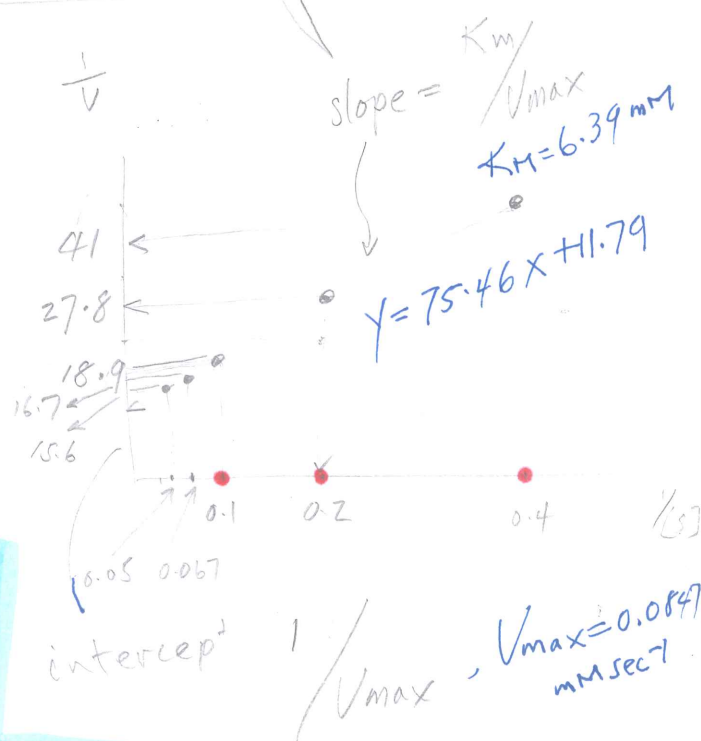 1/V
slope = Km/Vmax
KM=6.39 mM
41
27.8
y=75.46x+11.79
18.9
16.7
15.6
0.1 0.2 0.4 1/[S]
0.05 0.067
intercept 1/Vmax, Vmax=0.0847
mM sec-1